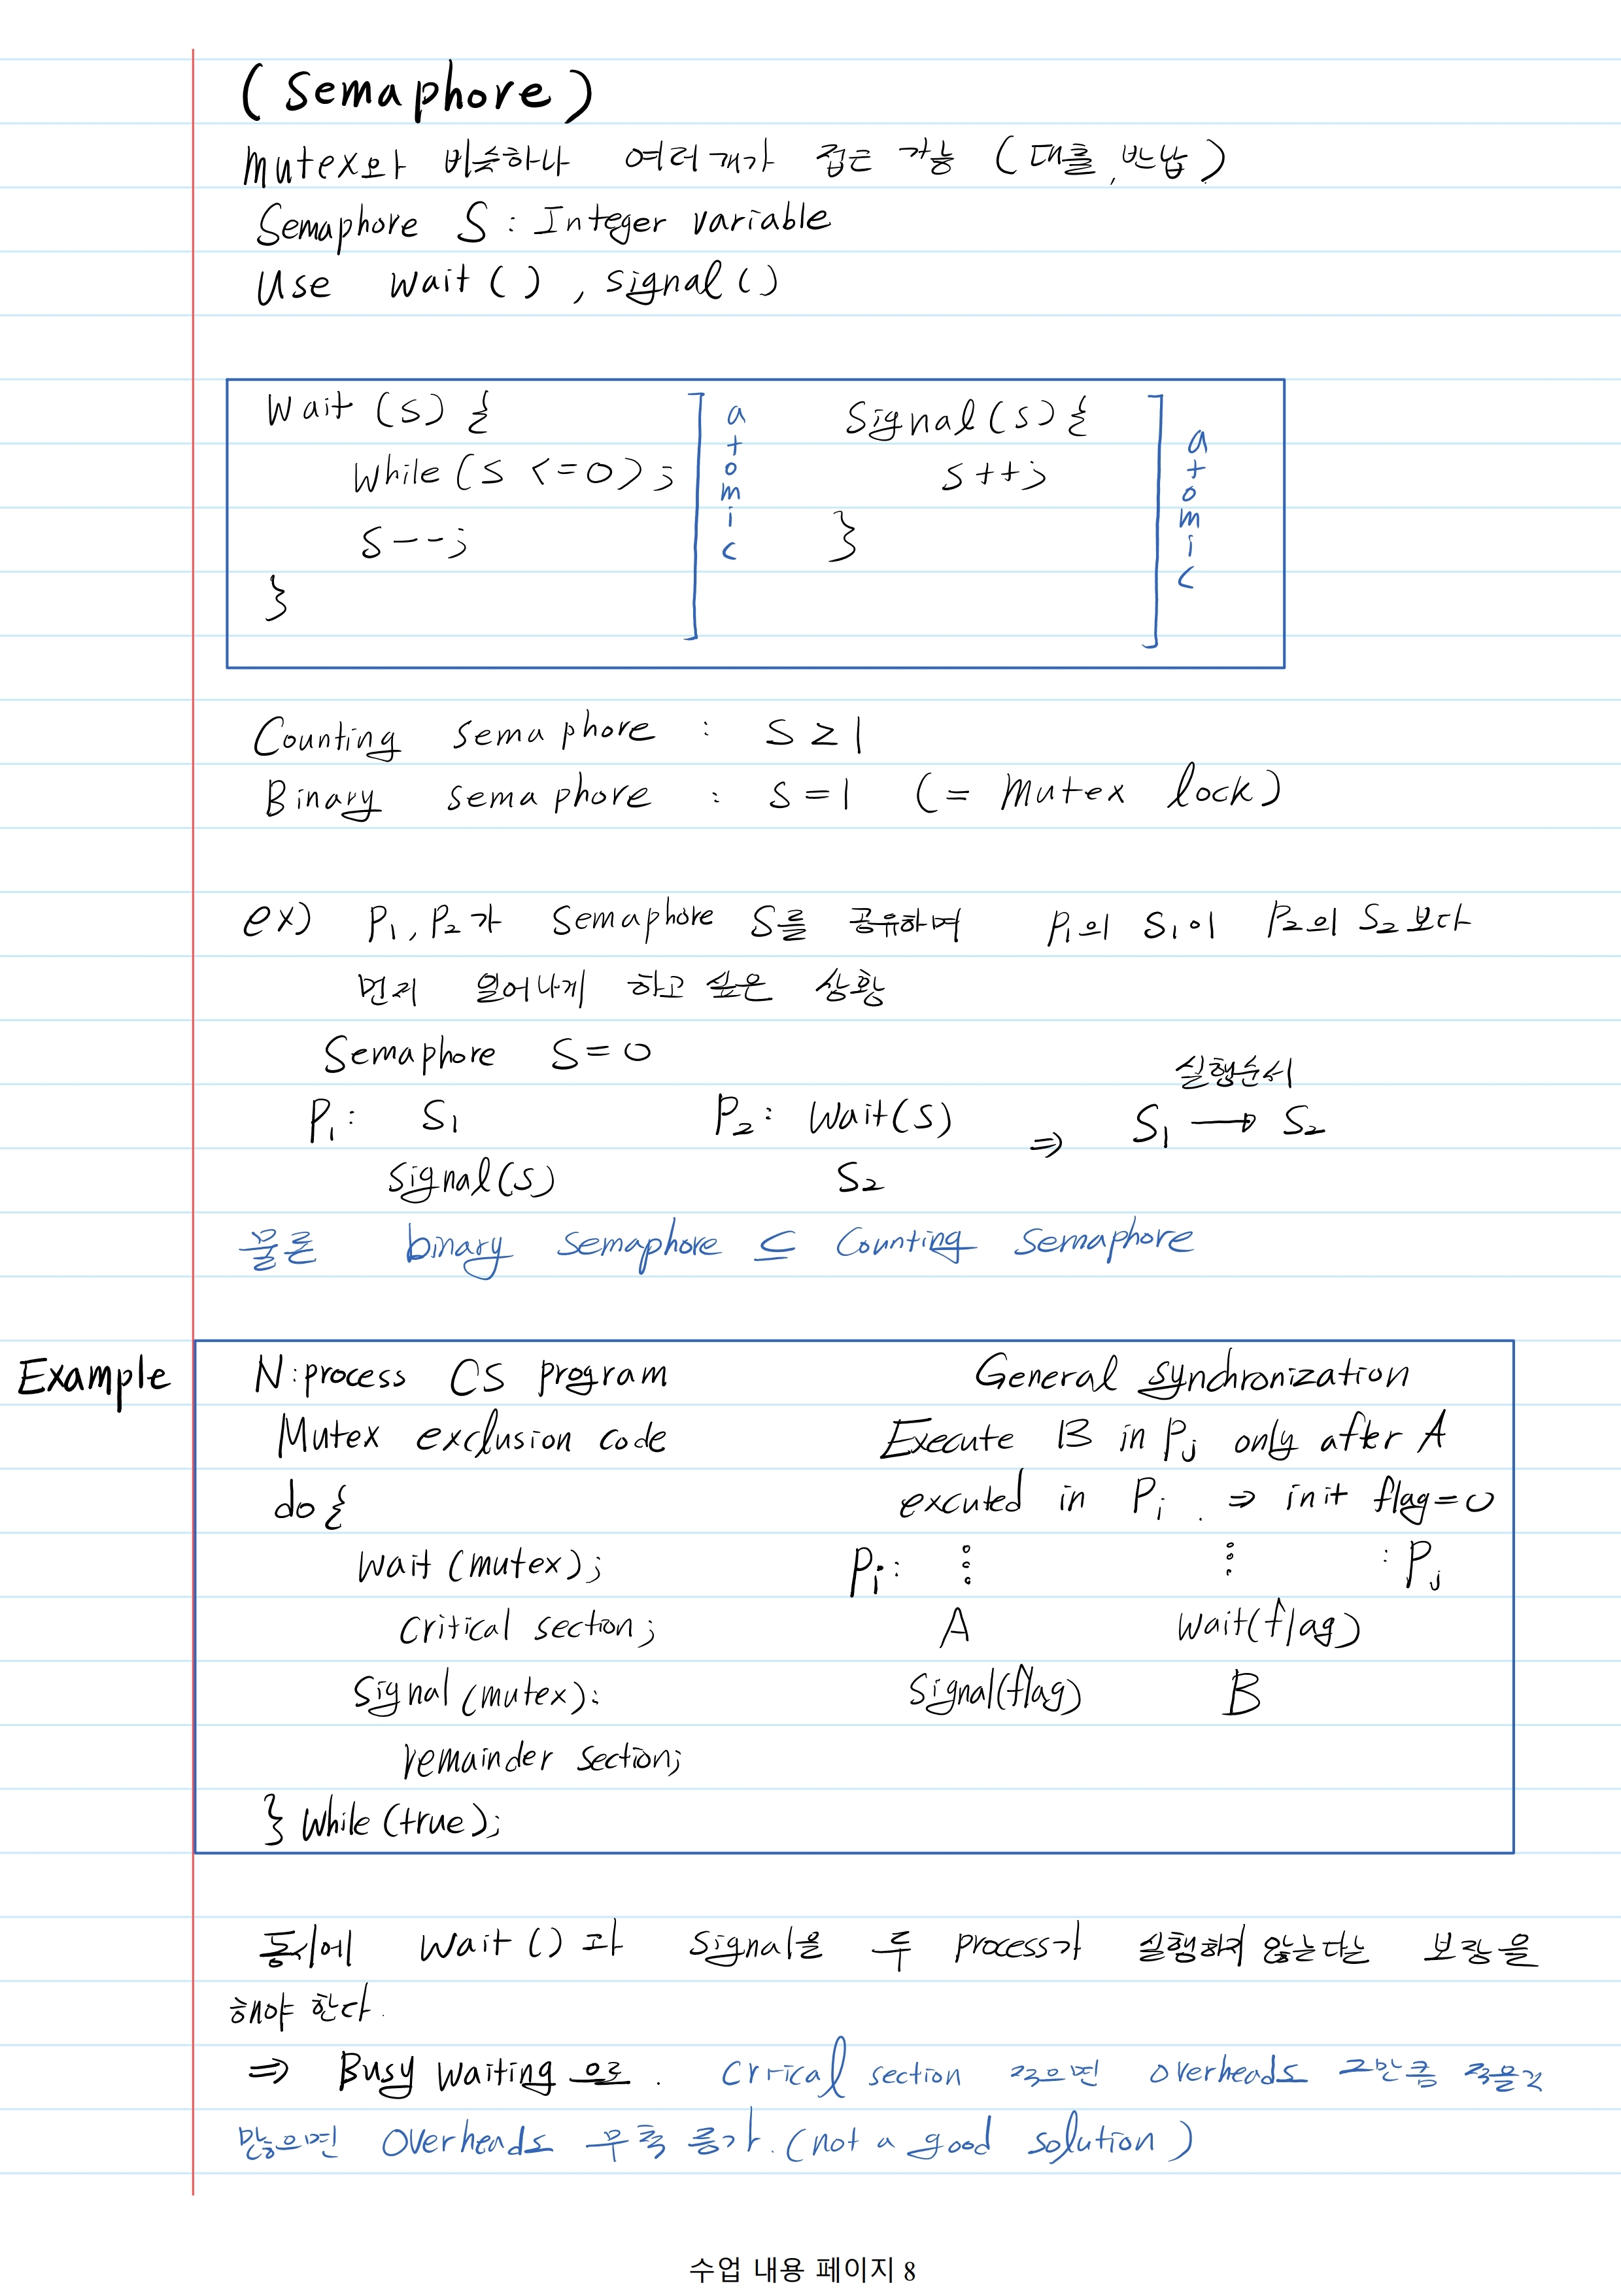 (Semaphore)
Mutex와 비슷하나 여러개가 접근 가능 (대출, 반납)
Semaphore S : Integer variable
Use wait ( ) , signal ( )
Wait (S) {
While (S <= 0) ;
S--;
}
atomic
Signal (S) {
S++;
}
atomic
Counting semaphore : S ≥ 1
Binary semaphore : S = 1 (= Mutex lock)
ex) P₁, P₂가 Semaphore S를 공유하며 P₁의 S₁이 P₂의 S₂보다
먼저 일어나게 하고 싶은 상황
Semaphore S = 0
실행순서
P₁: S₁ P₂: Wait(S) ⇒ S₁ → S₂
Signal(S) S₂
물론 binary semaphore ⊆ Counting Semaphore
Example
N:process CS program
Mutex exclusion code
do {
Wait (mutex);
Critical section;
Signal (mutex):
remainder section;
} While (true);
General synchronization
Execute B in Pj only after A
excuted in Pi. ⇒ init flag = 0
Pi: ⋮ ⋮ : Pj
A Wait(flag)
Signal(flag) B
동시에 Wait () 과 Signal을 두 process가 실행하지 않는다는 보장을
해야 한다.
⇒ Busy waiting 으로. Crtical section 적으면 overheads 그만큼 적을것
많으면 Overheads 무척 증가. (not a good solution)
수업 내용 페이지 8